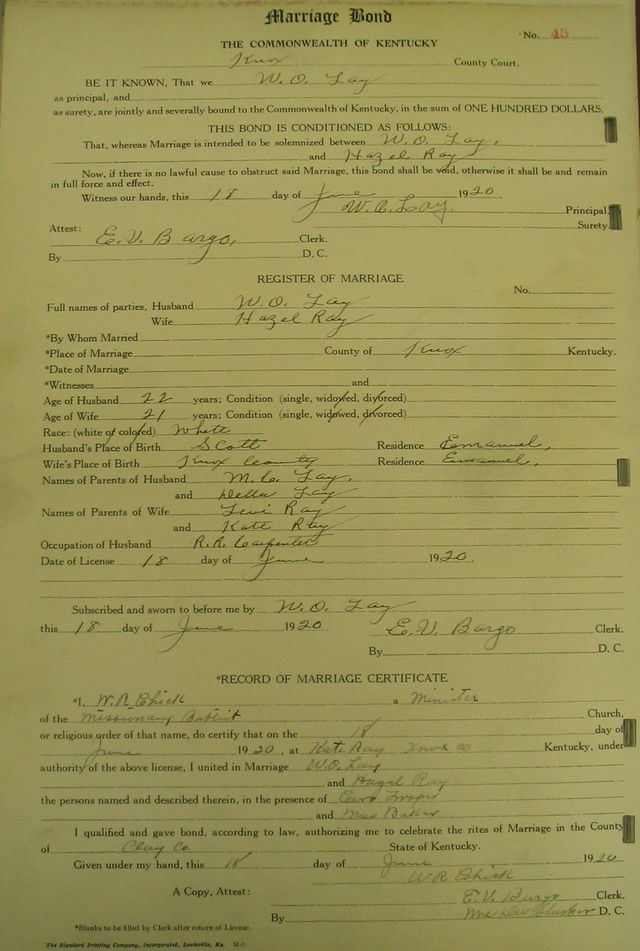 Marriage Bond
No. 45
THE COMMONWEALTH OF KENTUCKY
Knox County Court.
BE IT KNOWN, That we W. O. Lay
as principal, and
as surety, are jointly and severally bound to the Commonwealth of Kentucky, in the sum of ONE HUNDRED DOLLARS.
THIS BOND IS CONDITIONED AS FOLLOWS:
That, whereas Marriage is intended to be solemnized between W. O. Lay,
and Hazel Ray
Now, if there is no lawful cause to obstruct said Marriage, this bond shall be void, otherwise it shall be and remain
in full force and effect.
Witness our hands, this 18 day of June 1920.
W. O. Lay. Principal.
Surety.
Attest: E. V. Bargo, Clerk.
By D. C.
REGISTER OF MARRIAGE
No.
Full names of parties, Husband W. O. Lay
Wife Hazel Ray
*By Whom Married
*Place of Marriage County of Knox Kentucky.
*Date of Marriage
*Witnesses and
Age of Husband 22 years; Condition (single, widowed, divorced)
Age of Wife 21 years; Condition (single, widowed, divorced)
Race: (white or colored) White
Husband's Place of Birth Scott Residence Emanuel,
Wife's Place of Birth Knox County Residence Emanuel,
Names of Parents of Husband M. C. Lay,
and Della Lay
Names of Parents of Wife Levi Ray
and Kate Ray
Occupation of Husband R. R. Carpenter
Date of License 18 day of June 1920.
Subscribed and sworn to before me by W. O. Lay
this 18 day of June 1920 E. V. Bargo Clerk.
By D. C.
*RECORD OF MARRIAGE CERTIFICATE
*I, W. R. Chick a Minister
of the Missionary Baptist Church,
or religious order of that name, do certify that on the 18 day of
June 1920, at Kate Ray Knox Co Kentucky, under
authority of the above license, I united in Marriage W. O. Lay
and Hazel Ray
the persons named and described therein, in the presence of
and Baker
I qualified and gave bond, according to law, authorizing me to celebrate the rites of Marriage in the County
of Clay Co. State of Kentucky.
Given under my hand, this 18 day of June 1920
W R Chick
A Copy, Attest: E. V. Bargo Clerk.
By D. C.
*Blanks to be filled by Clerk after return of License.
The Standard Printing Company, Incorporated, Louisville, Ky. M-7.